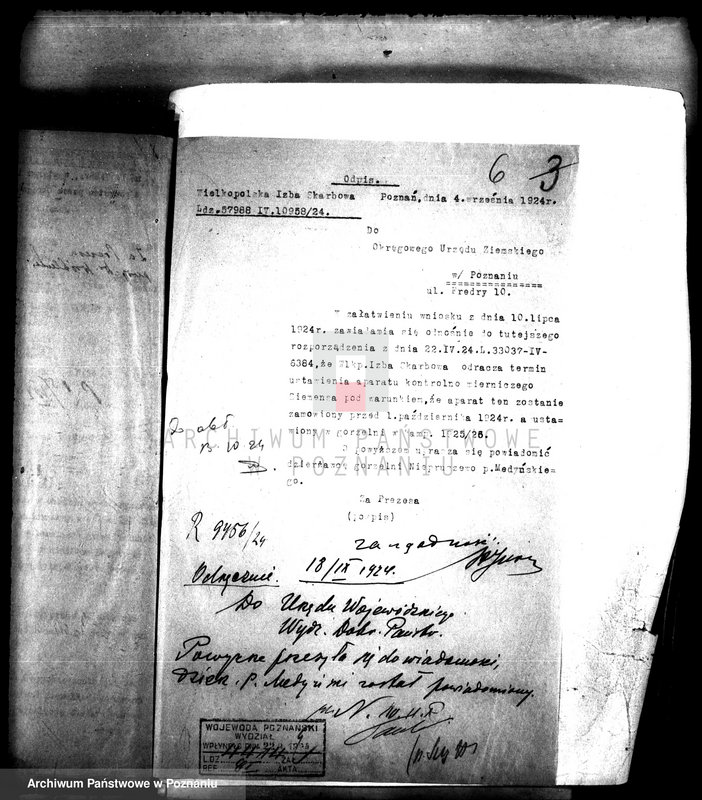 6 3
Odpis.
Wielkopolska Izba Skarbowa Poznań, dnia 4. września 1924r.
Ldz.57988 IV.10958/24.
Do
Okręgowego Urzędu Ziemskiego
w/ Poznaniu
ul. Fredry 10.
W załatwieniu wniosku z dnia 10.lipca
1924r. zawiadamia się odnośnie do tutejszego
rozporządzenia z dnia 22.IV.24.L.33037-IV-
5384,że Wlkp.Izba Skarbowa odracza termin
ustawienia aparatu kontrolno mierniczego
Siemensa pod warunkiem,że aparat ten zostanie
zamówiony przed 1.października 1924r. a usta-
wiony w gorzelni w kamp. 1925/26.
O powyższem uprasza się powiadomić
dzierżawcę gorzelni Niepruszewo p.Medyńskie-
go.
Za Prezesa
(podpis)
13 10 24
R 9456/24
za zgodność:
Odręcznie. 18/IX 1924.
Do Urzędu Wojewódzkiego
Wydz. Dóbr. Państw.
Powyższe przesyła się do wiadomości,
dzierż. p. Medyński został powiadomiony.
WOJEWODA POZNAŃSKI
WYDZIAŁ
WPŁYNĘŁO DNIA
L.DZ. ZAŁ.
REF. AKTA
ARCHIWUM PAŃSTWOWE
W POZNANIU
Archiwum Państwowe w Poznaniu